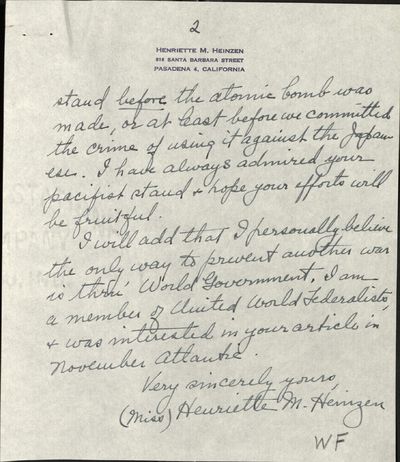 2
HENRIETTE M. HEINZEN
515 SANTA BARBARA STREET
PASADENA 4, CALIFORNIA
stand before the atomic bomb was
made, or at least before we committed
the crime of using it against the Japan
ese. I have always admired your
pacifist stand & hope your efforts will
be fruitful.
I will add that I personally believe
the only way to prevent another war
is thru' World Government. I am
a member of United World Federalists,
& was interested in your article in
November Atlantic.
Very sincerely yours,
(Miss) Henriette M. Heinzen
WF